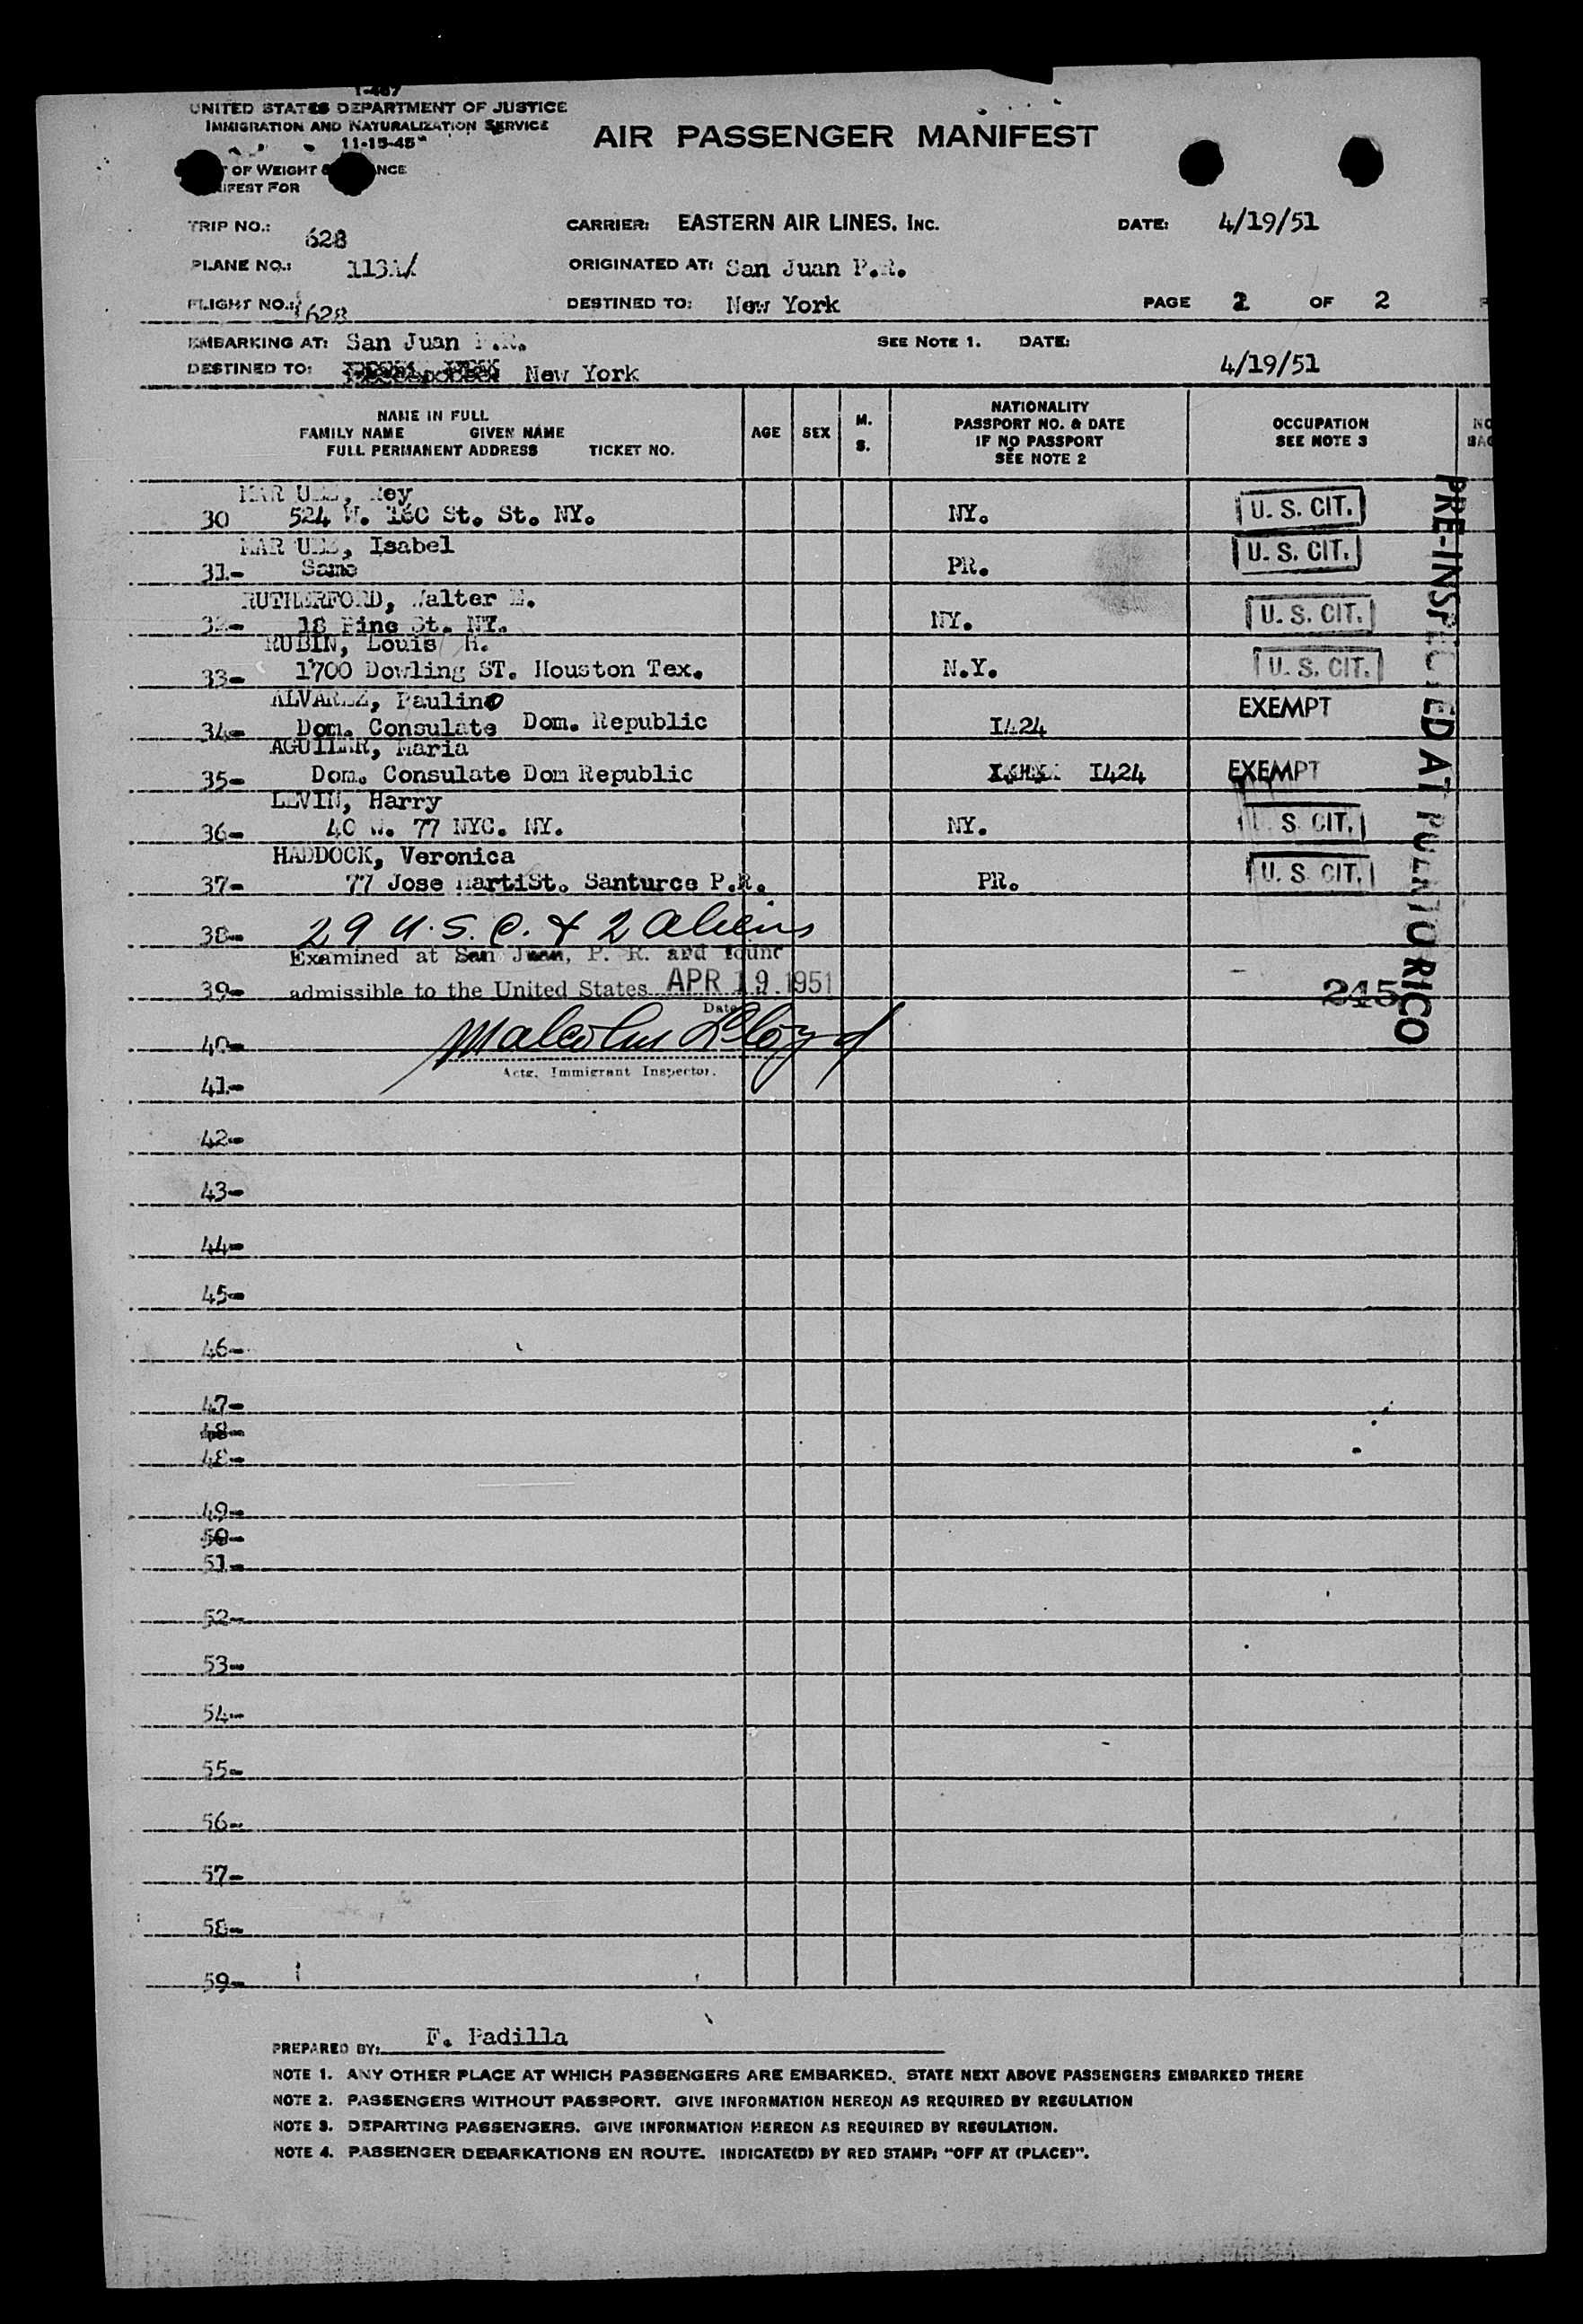 I-467
UNITED STATES DEPARTMENT OF JUSTICE
IMMIGRATION AND NATURALIZATION SERVICE
11-15-45
AIR PASSENGER MANIFEST
OF WEIGHT &
FOR
TRIP NO.: 628
CARRIER: EASTERN AIR LINES, INC.
DATE: 4/19/51
PLANE NO.:
ORIGINATED AT: San Juan P.R.
FLIGHT NO.: 628
DESTINED TO: New York
PAGE 2 OF 2
EMBARKING AT: San Juan P.R.
SEE NOTE 1. DATE:
DESTINED TO: New York
4/19/51
NAME IN FULL
FAMILY NAME GIVEN NAME
FULL PERMANENT ADDRESS TICKET NO.
AGE
SEX
M.
S.
NATIONALITY
PASSPORT NO. & DATE
IF NO PASSPORT
SEE NOTE 2
OCCUPATION
SEE NOTE 3
30 524 W. 160 St. St. NY. NY. U. S. CIT.
Isabel
31- Same PR. U. S. CIT.
RUTHERFORD, Walter E.
32- 18 Pine St. NY. NY. U. S. CIT.
RUBIN, Louis H.
33- 1700 Dowling ST. Houston Tex. N.Y. U. S. CIT.
ALVAREZ, Paulino
34- Dom. Consulate Dom. Republic I424 EXEMPT
AGUILAR, Maria
35- Dom. Consulate Dom Republic I424 EXEMPT
LEVIN, Harry
36- 40 W. 77 NYC. NY. NY. S. CIT.
HADDOCK, Veronica
37- 77 Jose MartiSt. Santurce P.R. PR. U. S. CIT.
PRE-INSPECTED AT PUERTO RICO
38- 29 U.S.C. & 2 aliens
Examined at San Juan, P. R. and found
39- admissible to the United States APR 19 1951
Date
245
40- Malcolm Lloyd
Actg. Immigrant Inspector.
41-
42-
43-
44-
45-
46-
47-
48-
48-
49-
50-
51-
52-
53-
54-
55-
56-
57-
58-
59-
PREPARED BY: F. Padilla
NOTE 1. ANY OTHER PLACE AT WHICH PASSENGERS ARE EMBARKED. STATE NEXT ABOVE PASSENGERS EMBARKED THERE
NOTE 2. PASSENGERS WITHOUT PASSPORT. GIVE INFORMATION HEREON AS REQUIRED BY REGULATION
NOTE 3. DEPARTING PASSENGERS. GIVE INFORMATION HEREON AS REQUIRED BY REGULATION.
NOTE 4. PASSENGER DEBARKATIONS EN ROUTE. INDICATE(D) BY RED STAMP: "OFF AT (PLACE)".